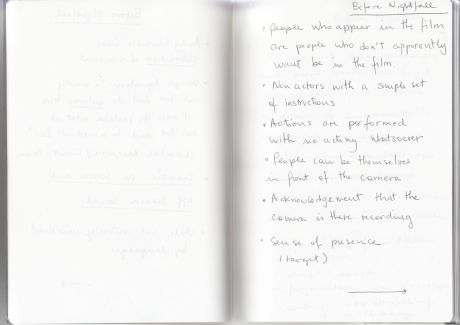 Before Nightfall
• People who appear in the film
are people who don't apparently
want be in the film.
• Non actors with a simple set
of instructions
• Actions are performed
with no acting whatsoever
• People can be themselves
in front of the camera
• Acknowledgement that the
camera is there recording
• Sense of presence
(target)